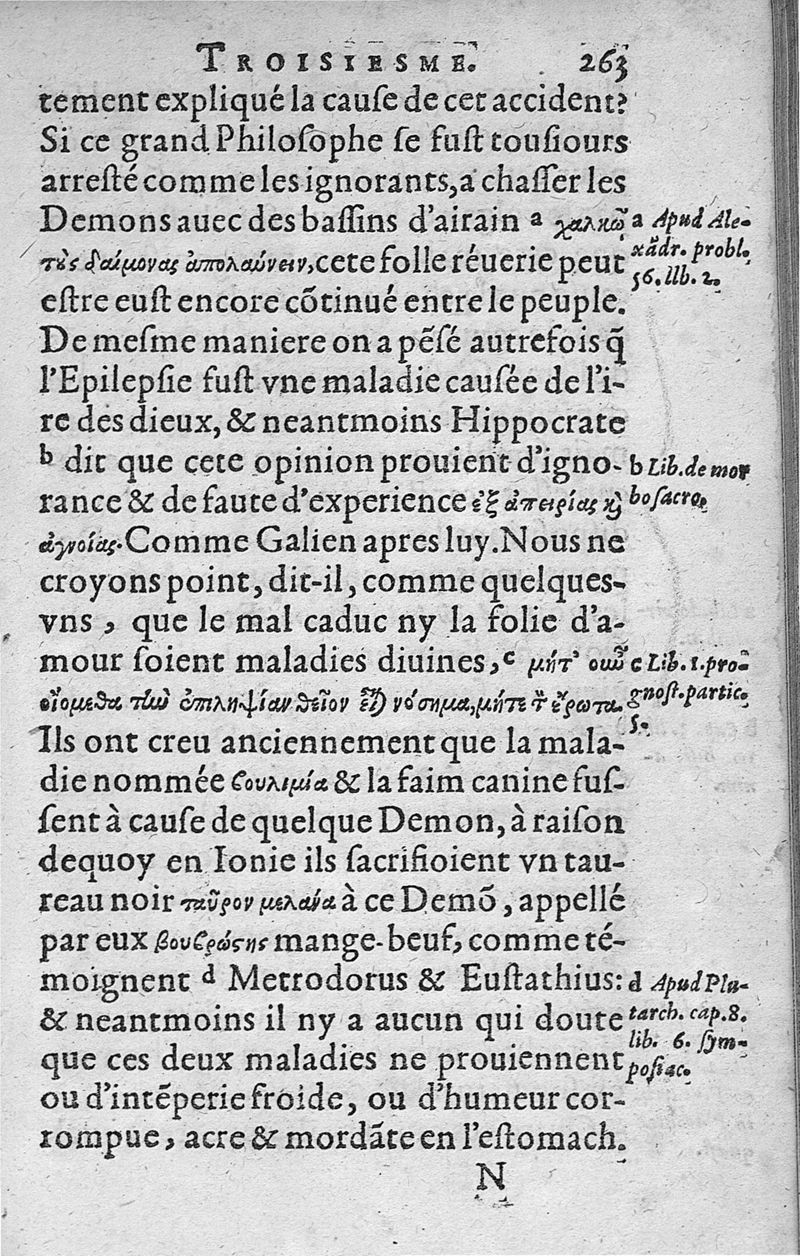 TROISIESME. 263
tement expliqué la cauſe de cet accident?
Si ce grand Philoſophe ſe fuſt touſiours
arreſté comme les ignorants, a chaſſer les
Demons auec des baſſins d'airain a χαλκῶ
τοὺς δαίμονας ἀπολαύνειν, cete folle réuerie peut
eſtre euſt encore cõtinué entre le peuple.
De meſme maniere on a pẽſé autrefois q̃
l'Epilepſie fuſt vne maladie cauſée de l'i-
re des dieux, & neantmoins Hippocrate
b dit que cete opinion prouient d'igno-
rance & de faute d'experience ἐξ ἀπειρίας ϗ̀
ἀγνοίας. Comme Galien apres luy. Nous ne
croyons point, dit-il, comme quelques-
vns, que le mal caduc ny la folie d'a-
mour ſoient maladies diuines, c μήτ' οιῶ
οἰόμεθα τὴν ἐπιληψίαν θεῖον εἶ) νόσημα, μήτε τ̀ ἔρωτα.
Ils ont creu anciennement que la mala-
die nommée ϐουλιμία & la faim canine fuſ-
ſent à cauſe de quelque Demon, à raiſon
dequoy en Ionie ils ſacrifioient vn tau-
reau noir ταῦρον μελανα à ce Demõ, appellé
par eux βουϐρώςης mange-beuf, comme té-
moignent d Metrodorus & Euſtathius:
& neantmoins il ny a aucun qui doute
que ces deux maladies ne prouiennent
ou d'intẽperie froide, ou d'humeur cor-
rompue, acre & mordãte en l'eſtomach.
N
a Apud Ale-
xãdr. probl.
56. lib. 2.
b Lib. de mor
bo ſacro.
c Lib. 1. pro-
gnoſt. partic.
5.
d Apud Plu-
tarch. cap. 8.
lib. 6. ſym-
poſiac.